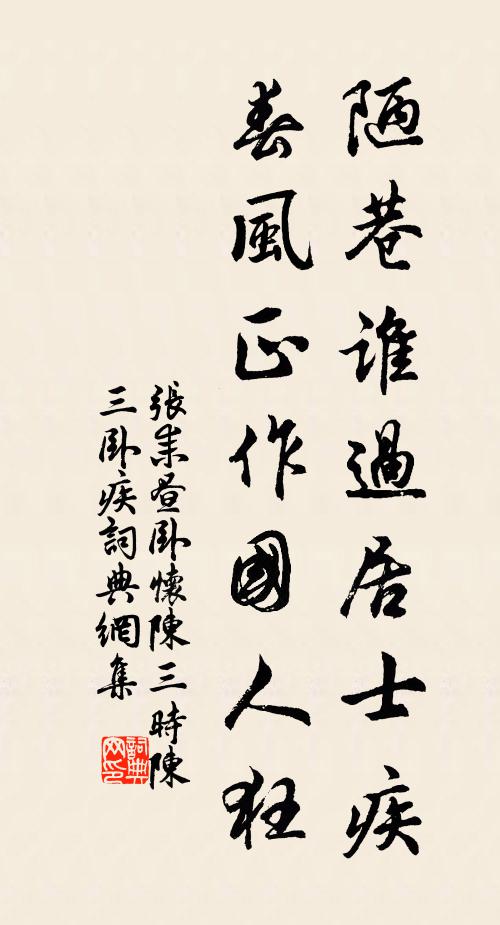 陋巷誰過居士疾
春風正作國人狂
張耒晝臥懷陳三時陳
三臥疾詞典網集
詞典
网印